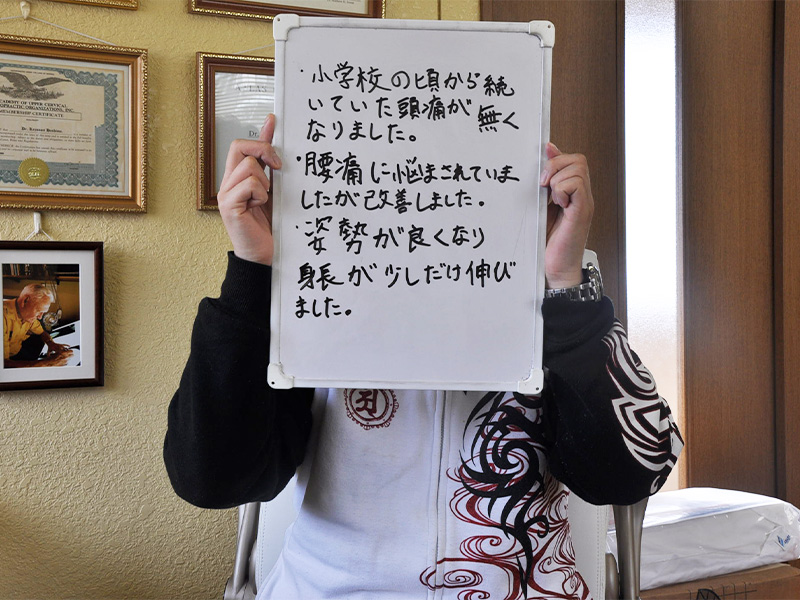 ACADEMY OF UPPER CERVICAL
CHIROPRACTIC ORGANIZATIONS, INC.
MEMBERSHIP CERTIFICATE
・小学校の頃から続
いていた頭痛が無く
なりました。
・腰痛に悩まされていま
したが改善しました。
・姿勢が良くなり
身長が少しだけ伸び
ました。